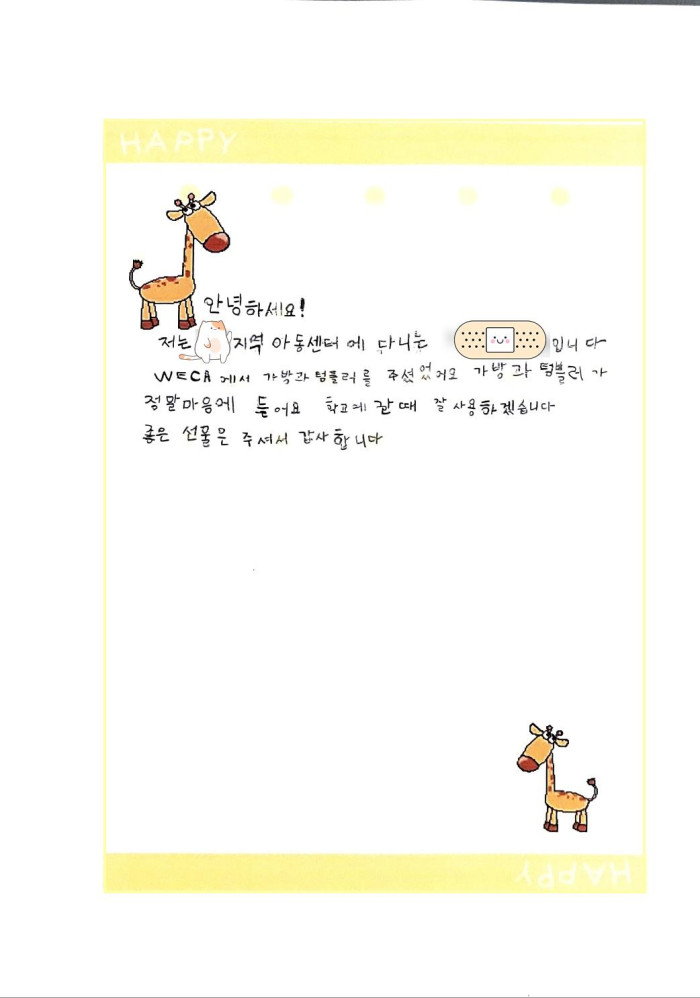 HAPPY
안녕하세요!
저는 지역아동센터에 다니는 입니다
WECA에서 가방과 텀플러를 주셨었어요 가방과 텀블러가
정말마음에 들어요 학교에 갈때 잘 사용하겠습니다
좋은 선물은 주셔서 감사합니다
HAPPY